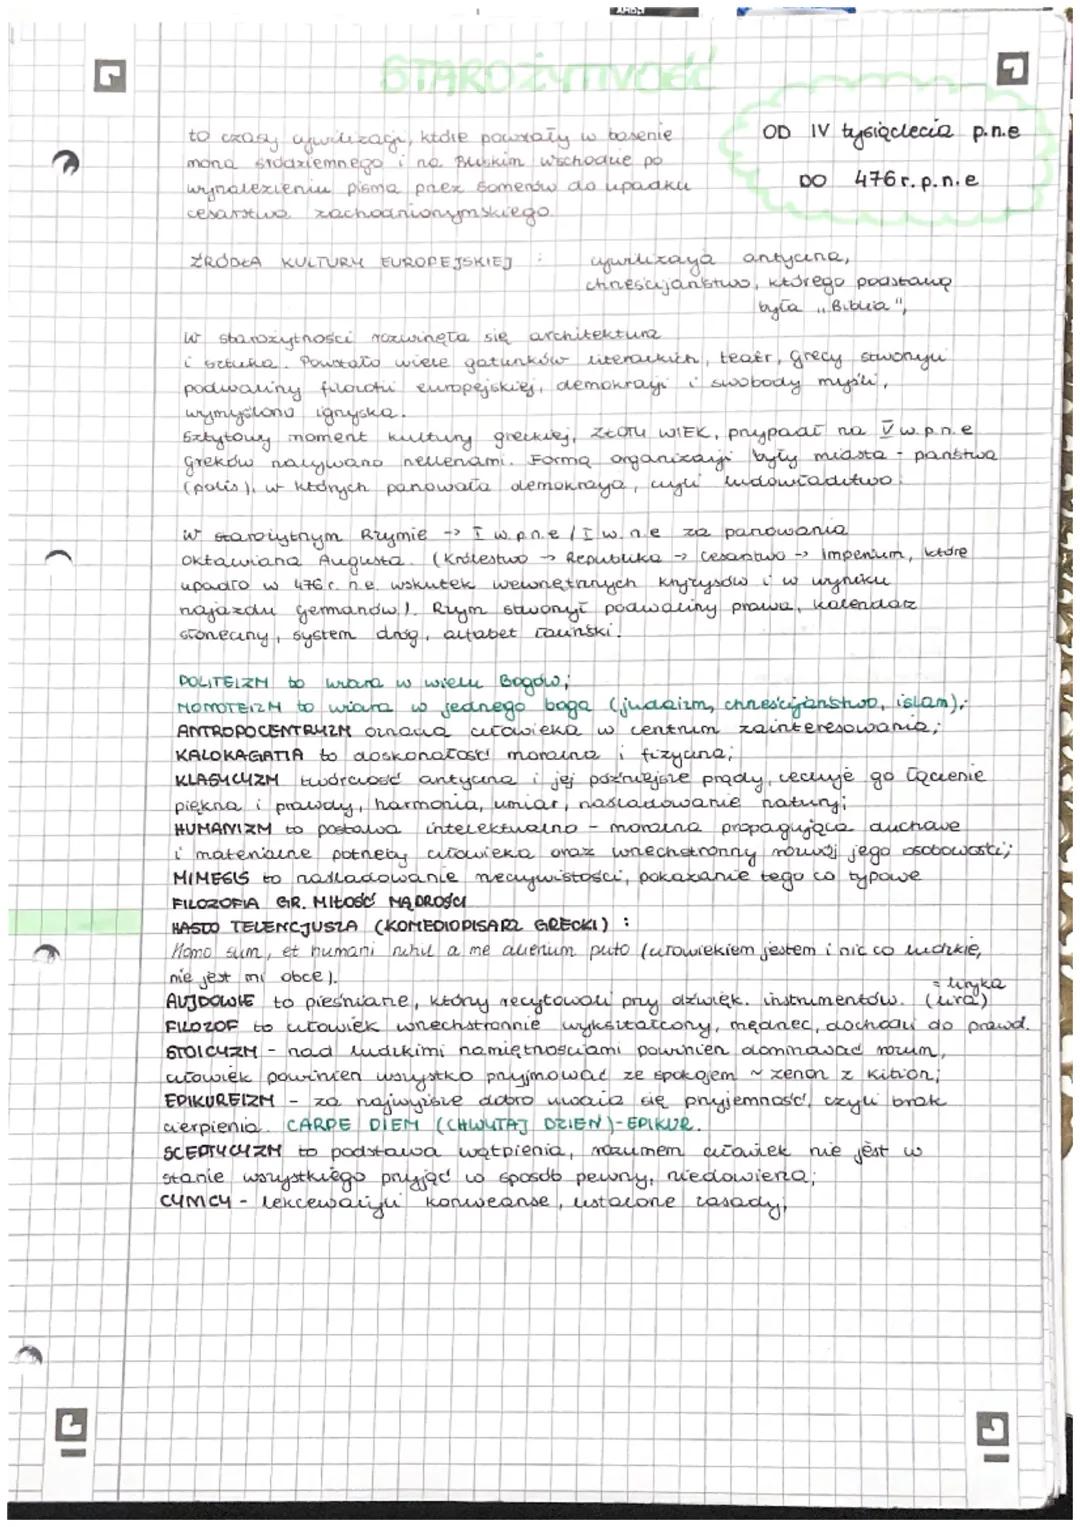 STAROŻYTNOŚĆ
to czasy cywilizacji, które powstały w basenie
morza śródziemnego i na Bliskim wschodzie po
wynalezieniu pisma przez Somerów do upadku
cesarstwa zachodniorzymskiego.
OD IV tysiąclecia p.n.e
DO 476 r. p.n.e
ŹRÓDŁA KULTURY EUROPEJSKIEJ : cywilizacja antyczna,
chrześcijaństwo, którego podstawą
była „Biblia",
W starożytności rozwinęła się architektura
i sztuka. Powstało wiele gatunków literackich, teatr, grecy stworzyli
podwaliny filozofii europejskiej, demokracji i swobody myśli,
wymyślono igrzyska.
Sztytowy moment kultury greckiej, ZŁOTY WIEK, przypadł na V w p.n.e
Greków nazywano hellenami. Formą organizacji były miasta - państwa
(polis), w których panowała demokracja, czyli ludowładztwo.
W starożytnym Rzymie -> I w p.n.e / I w. n.e za panowania
Oktawiana Augusta. (Królestwo -> Republika -> cesarstwo -> Imperium, które
upadło w 476 r. n.e. wskutek wewnętrznych kryzysów i w wyniku
najazdu Germanów). Rzym stworzył podwaliny prawa, kalendarz
słoneczny, system dróg, alfabet łaciński.
POLITEIZM to wiara w wielu Bogów;
MONOTEIZM to wiara w jednego boga (judaizm, chrześcijaństwo, islam);
ANTROPOCENTRYZM oznacza człowieka w centrum zainteresowania;
KALOKAGATIA to doskonałość moralna i fizyczna;
KLASYCYZM twórczość antyczna i jej późniejsze prądy, cechuje go łączenie
piękna i prawdy, harmonia, umiar, naśladowanie natury;
HUMANIZM to postawa intelektualno - moralna propagująca duchowe
i materialne potrzeby człowieka oraz wszechstronny rozwój jego osobowości;
MIMESIS to naśladowanie rzeczywistości, pokazanie tego co typowe
FILOZOFIA GR. MIŁOŚĆ MĄDROŚCI
HASŁO TELENCJUSZA (KOMEDIOPISARZ GRECKI) :
Homo sum, et humani nihil a me alienum puto (człowiekiem jestem i nic co ludzkie,
nie jest mi obce).
= liryka
AUJDOWIE to pieśniarze, który recytowali przy dźwięk. instrumentów. (lira)
FILOZOF to człowiek wszechstronnie wykształcony, mędrzec, dochodzi do prawd.
STOICYZM - nad ludzkimi namiętnościami powinien dominować rozum,
człowiek powinien wszystko przyjmować ze spokojem ~ zenon z Kition;
EPIKUREIZM - za najwyższe dobro uważa się przyjemność, czyli brak
cierpienia. CARPE DIEM (CHWYTAJ DZIEŃ) - EPIKUR.
SCEPTYCYZM to podstawa wątpienia, rozumem człowiek nie jest w
stanie wszystkiego przyjąć w sposób pewny, niedowierza;
CYNICY - lekceważyli konweanse, ustalone zasady,